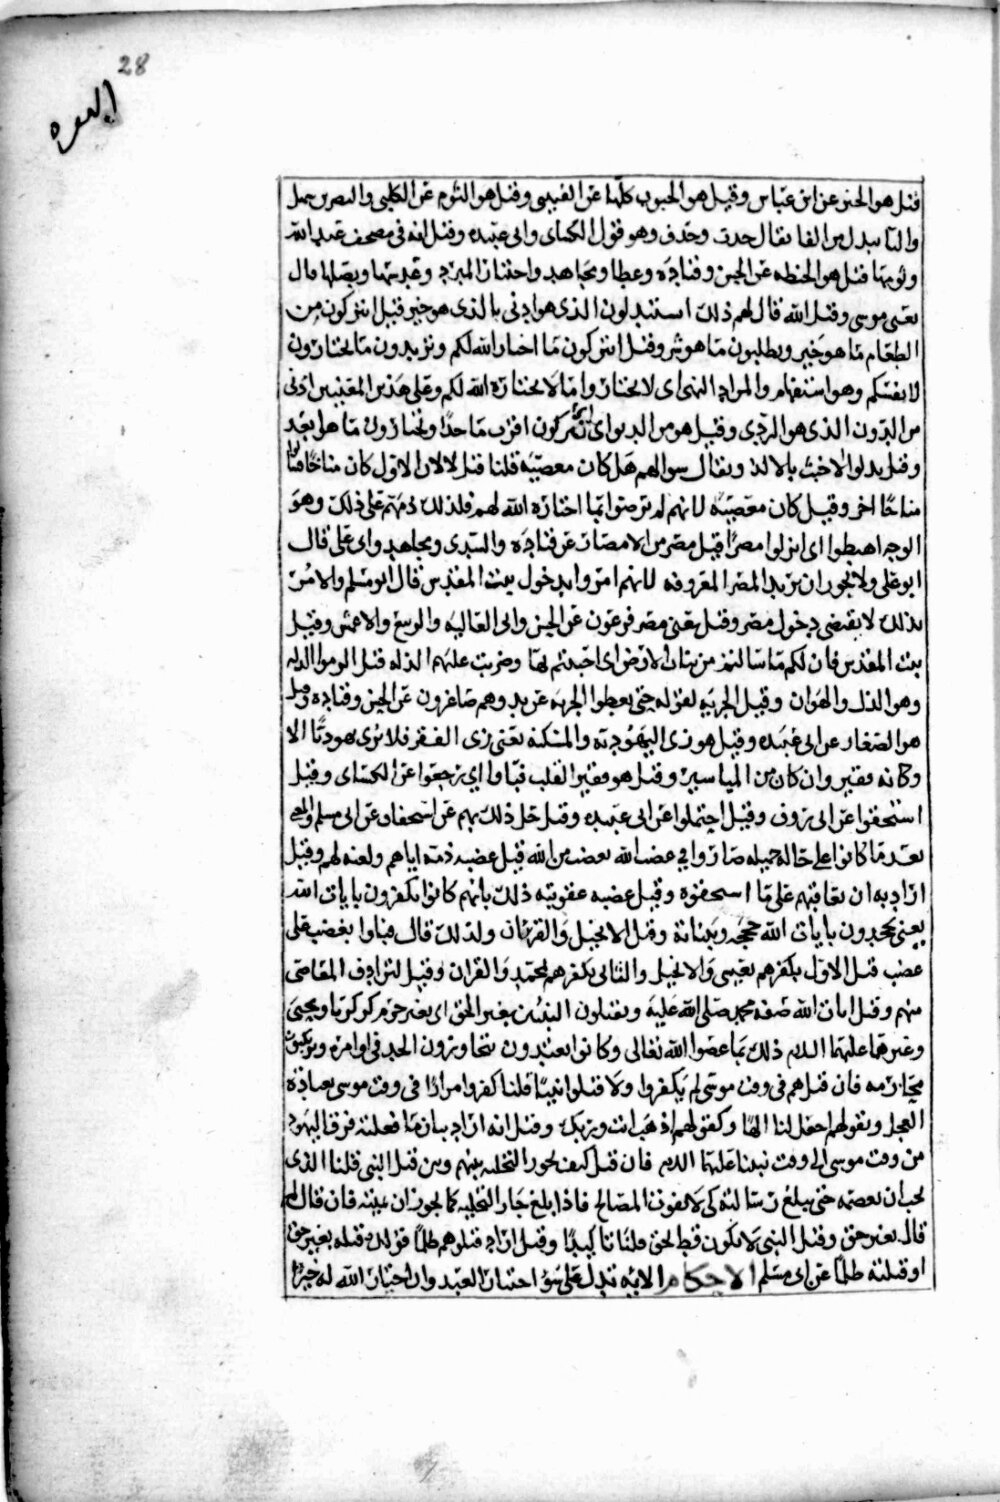 28
البقرة
قيل هو الخبز عن ابن عباس وقيل هو الحبوب كلها عن القتيبي وقيل هو الثوم عن الكلبي والنضر بن شميل
والثا يبدل من الفا يقال جدث وجدف وهو قول الكساي وابي عبيده وقيل انه في مصحف عبد الله
وثومها قيل هو الحنطه عن الحسن وقتاده وعطا ومجاهد واختيار المبرد وعدسها وبصلها قال
يعني موسى وقيل الله قال لهم ذلك اتستبدلون الذي هو ادنى بالذي هو خير قيل اتتركون من
الطعام ما هو خير وتطلبون ما هو شر وقيل اتتركون ما اختار الله لكم وتريدون ما تختارون
لانفسكم وهو استفهام والمراد النهي اي لا تختاروا ما لا يختاره الله لكم وعلى هذين المعنيين ادنى
من الدون الذي هو الردي وقيل هو من الدنو اي اتتركون اقرب ماخذا وتختارون ما هو ابعد
وقيل بدلوا الاخبث بالالذ ويقال سوالهم هل كان معصيه قلنا قيل لا لان الاول كان مباحا فسالوا
مباحا اخر وقيل كان معصيه لانهم لم يرضوا بما اختاره الله لهم فلذلك ذمهم على ذلك وهو
الوجه اهبطوا اي انزلوا مصرا قيل مصر من الامصار عن قتاده والسدي ومجاهد وابي علي قال
ابو علي ولا يجوز ان يريد المصر المعروفه لانهم امروا بدخول بيت المقدس قال ابو مسلم والامر
بذلك لا يقتضي دخول مصر وقيل يعني مصر فرعون عن الحسن وابي العاليه والربيع والاعمش وقيل
بيت المقدس فان لكم ما سالتم من نبات الارض اي اجبتم لها وضربت عليهم الذله قيل الزموا الذله
وهو الذل والهوان وقيل الجزيه لقوله حتى يعطوا الجزيه عن يد وهم صاغرون عن الحسن وقتاده وقيل
هو الصغار عن ابي عبيده وقيل هو زي اليهوديه والمسكنه يعني زي الفقر فلا ترى يهوديا الا
وكانه فقير وان كان من المياسير وقيل هو فقير القلب فباوا اي رجعوا عن الكساي وقيل
استحقوا عن ابي روق وقيل احتملوا عن ابي عبيده وقيل حل ذلك بهم عن اسحق وعن ابي مسلم
بعد ما كانوا على حاله جميله صاروا في غضب الله بغضب من الله قيل غضبه ذمه اياهم ولعنه لهم وقيل
اراد به ان يعاقبهم على ما استحقوه وقيل غضبه عقوبته ذلك بانهم كانوا يكفرون بايات الله
يعني يجحدون بايات الله حججه وبيناته وقيل الانجيل والقران ولذلك قال فباوا بغضب على
غضب قيل الاول بكفرهم بعيسى والانجيل والثاني بكفرهم بمحمد والقران وقيل لترادف المعاصي
منهم وقيل ايات الله صفه محمد صلى الله عليه ويقتلون النبيين بغير الحق اي بغير جرم كزكريا ويحيى
وغيرهما عليهما السلام ذلك بما عصوا الله تعالى وكانوا يعتدون يتجاوزون الحد في اوامره ويرتكبون
محارمه فان قيل هم في وقت موسى لم يكفروا ولا قتلوا نبيا قلنا كفروا مرارا في وقت موسى بعباده
العجل وبقولهم اجعل لنا الها وكقولهم اذهب انت وربك وقيل انه اراد بيان ما فعلته فرق اليهود
من وقت موسى الى وقت نبينا عليهما السلام فان قيل كيف تجوز التخليه بينهم وبين قتل النبي قلنا الذي
يجب ان يعصمه حتى يبلغ رسالته كي لا تفوت المصالح فاذا بلغ جاز التخليه كما يجوز ان يميته فان قال لم
قال بغير حق وقتل النبي لا يكون قط لحق قلنا تاكيدا وقيل اراد قتلوهم ظلما قولك قتله بغير حق
او قتلته ظلما عن ابي مسلم الاحكام الايه تدل على سو اختيار العبد وان اختيار الله له خير